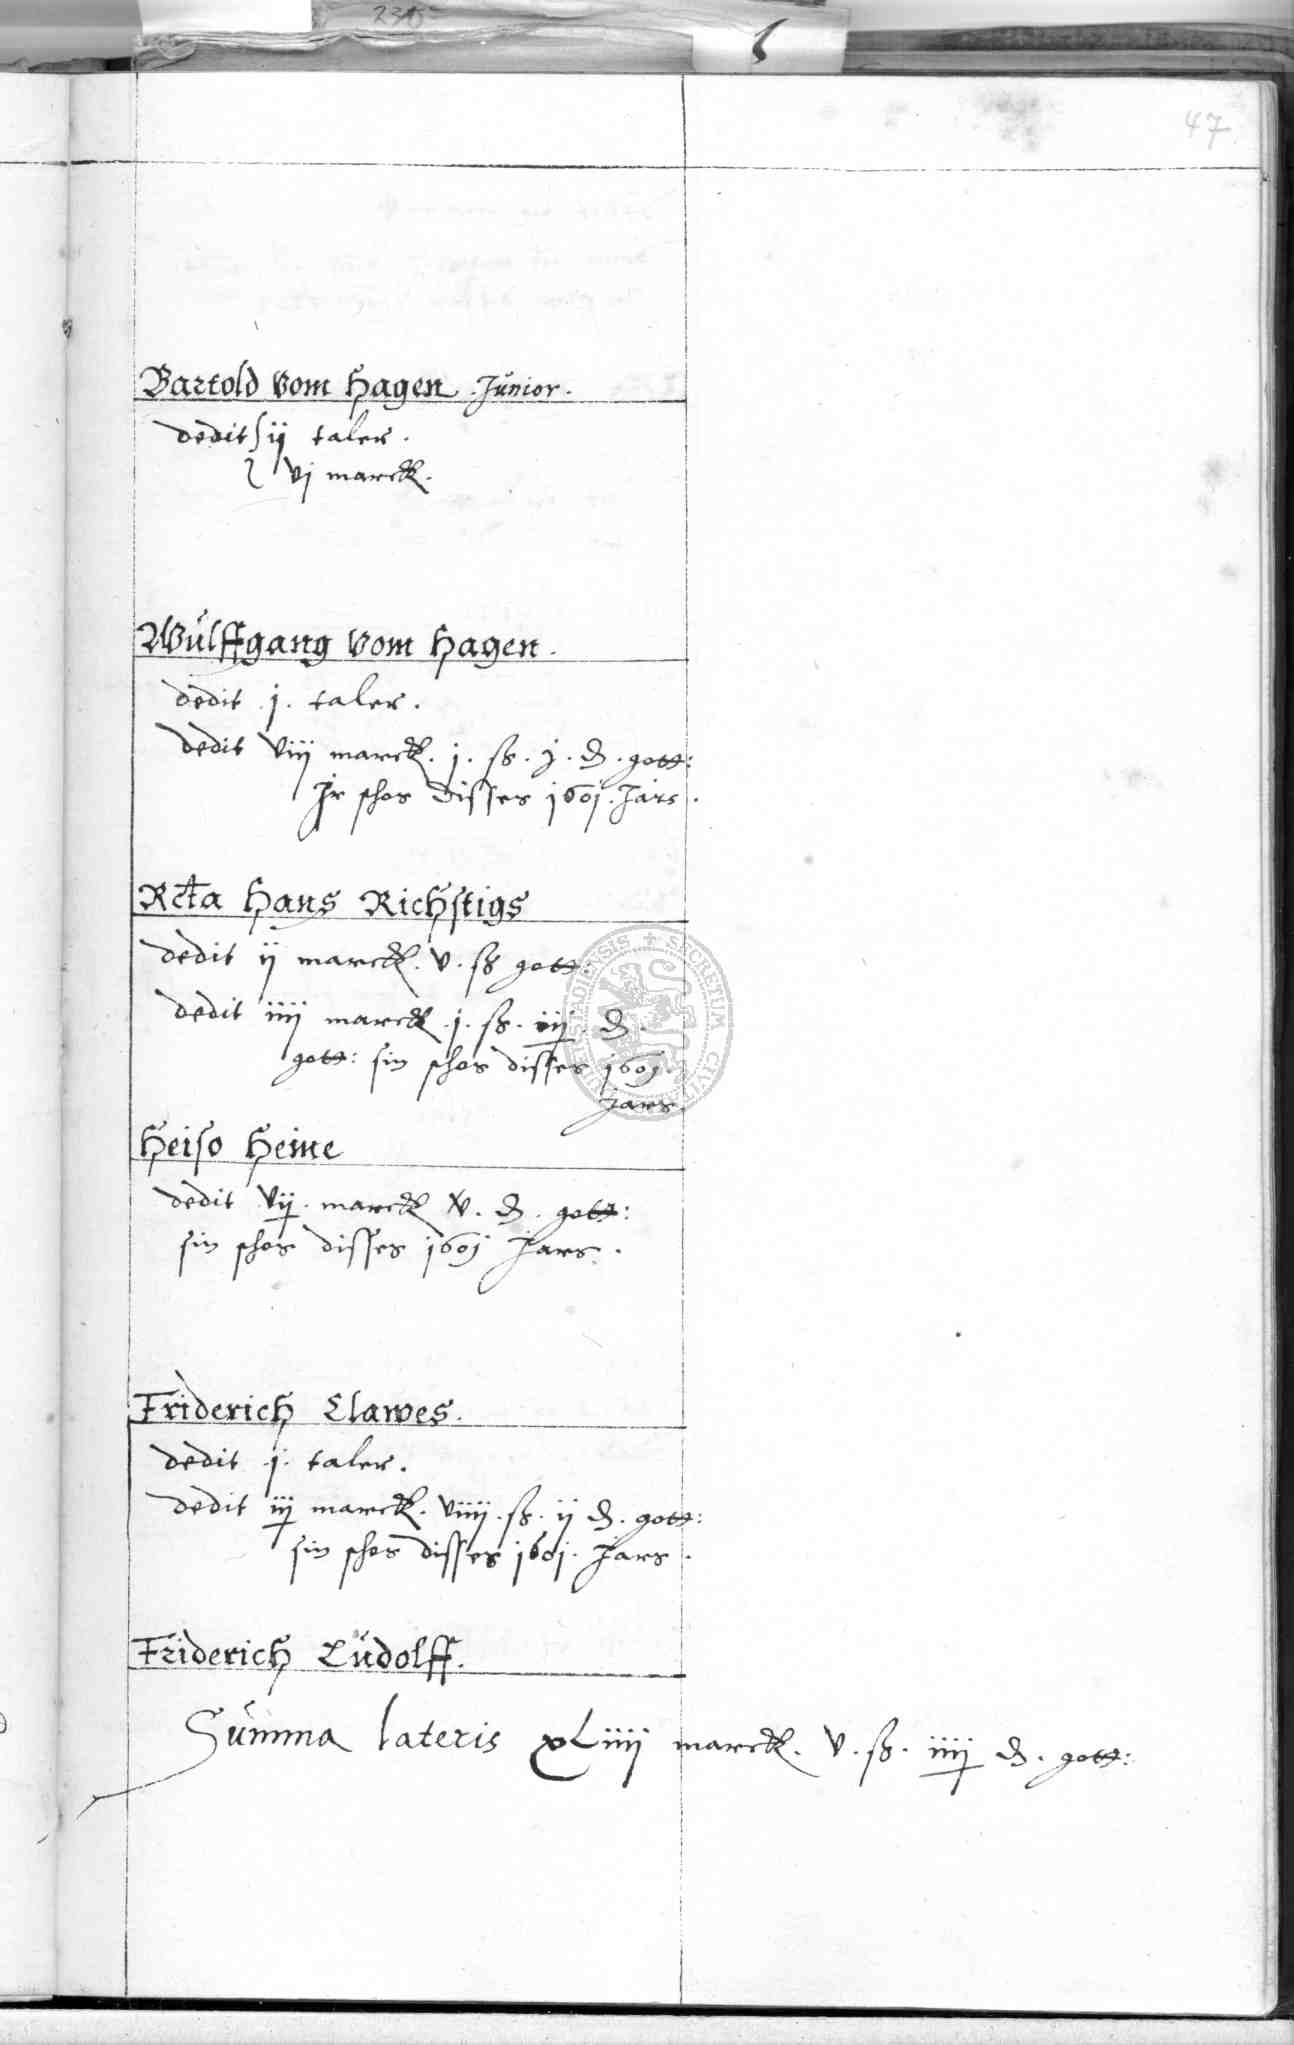 47
Bartold vom Hagen Junior.
dedit ij taler.
vj marck.
Wulffgang vom Hagen.
dedit j. taler.
dedit viij marck. j. ß. j. ₰. gott:
Jr schos disses 1601. Jars.
Rcta Hans Richstigs
dedit ij marck. v. ß gott:
dedit iiij marck. j. ß. iij ₰.
gott: sin schos disses 1601.
Jars.
Heiso Heine
dedit vij. marck v. ₰. gott:
sin schos disses 1601 Jars.
Friderich Clawes.
dedit j. taler.
dedit iij marck. viiij. ß. ij ₰. gott:
sin schos disses 1601. Jars.
Friderich Ludolff.
Summa lateris xLiiij marck. v. ß. iiij ₰. gott:
SECRETUM CIVITATIS